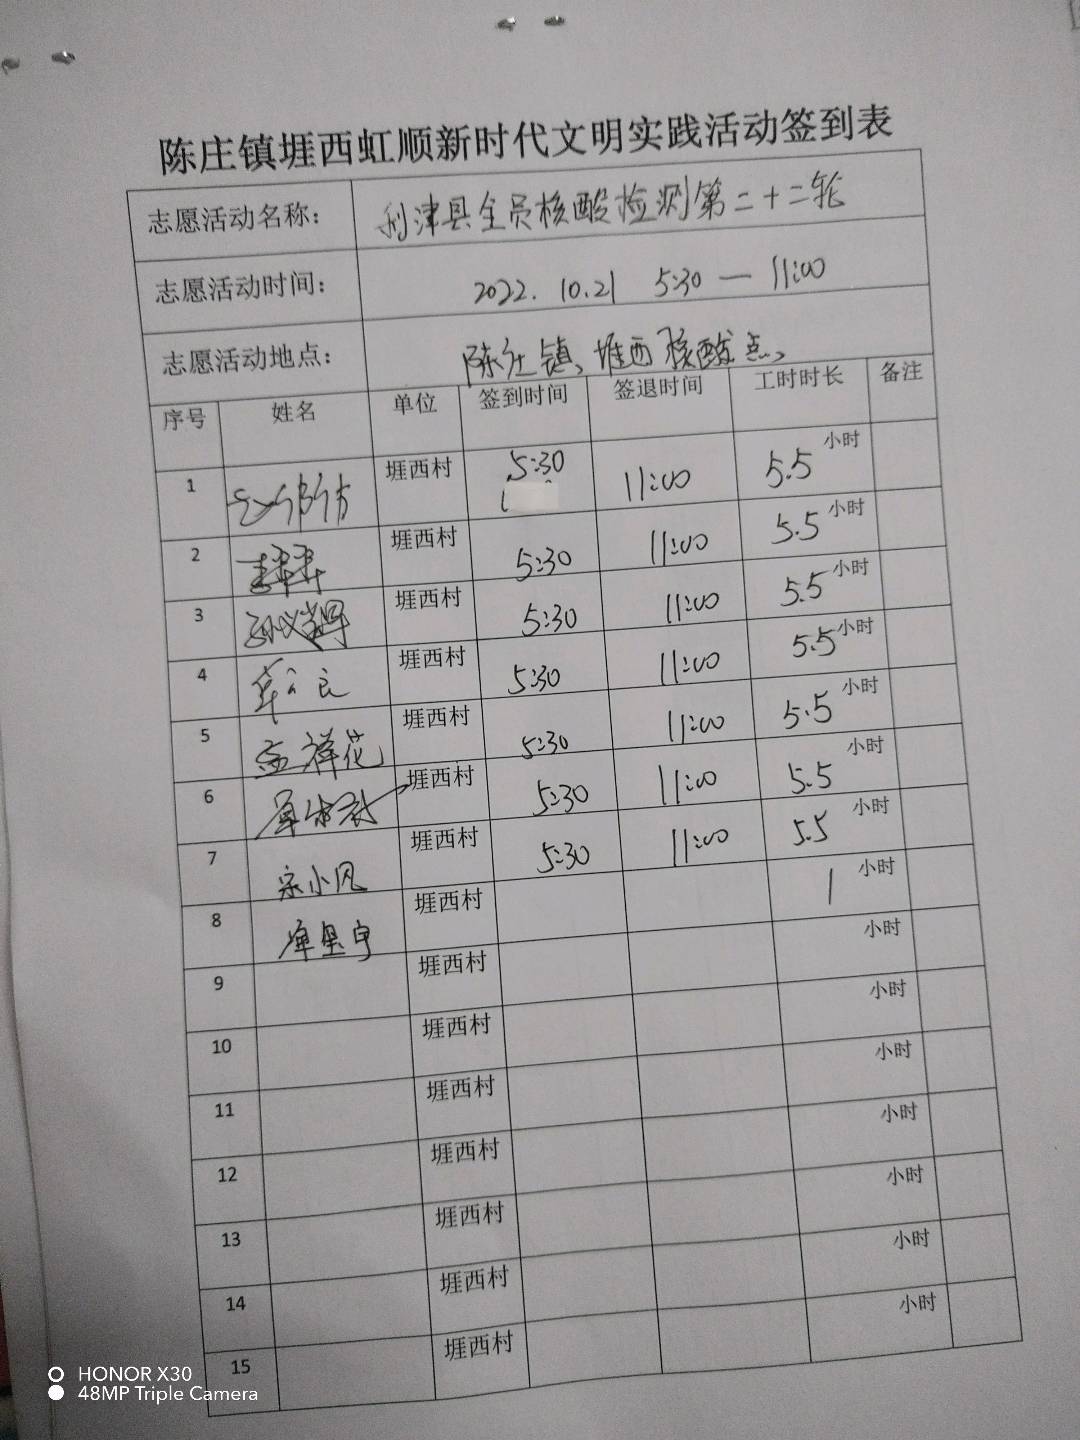 陈庄镇堐西虹顺新时代文明实践活动签到表
志愿活动名称： 利津县全员核酸检测第二十二轮
志愿活动时间： 2022.10.21 5:30 — 11:00
志愿活动地点： 陈庄镇、堐西核酸点、
序号 姓名 单位 签到时间 签退时间 工时时长 备注
1 堐西村 5:30 11:00 5.5 小时
2 堐西村 5:30 11:00 5.5 小时
3 堐西村 5:30 11:00 5.5 小时
4 堐西村 5:30 11:00 5.5 小时
5 孟祥花 堐西村 5:30 11:00 5.5 小时
6 堐西村 5:30 11:00 5.5 小时
7 宋小凤 堐西村 5:30 11:00 5.5 小时
8 堐西村 1 小时
9 堐西村 小时
10 堐西村 小时
11 堐西村 小时
12 堐西村 小时
13 堐西村 小时
14 堐西村 小时
15 堐西村 小时
HONOR X30
48MP Triple Camera